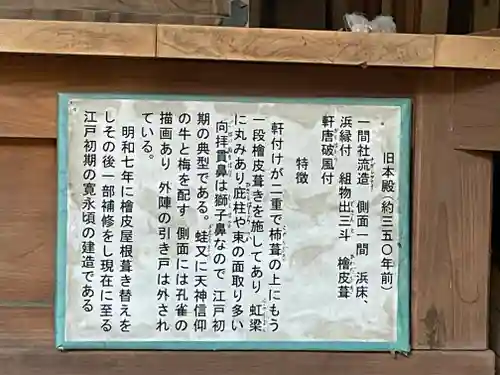 旧本殿（約三五〇年前）
一間社流造　側面一間　浜床、
浜縁付　組物出三斗　檜皮葺
軒唐破風付
特徴
軒付けが二重で柿葺の上にもう
一段檜皮葺きを施してあり　虹梁
に丸みあり庇柱や束の面取り多い
向拝貫鼻は獅子鼻なので　江戸初
期の典型である。蛙又に天神信仰
の牛と梅を配す　側面には孔雀の
描画あり　外陣の引き戸は外され
ている。
明和七年に檜皮屋根葺き替えを
しその後一部補修をし現在に至る
江戸初期の寛永頃の建造である